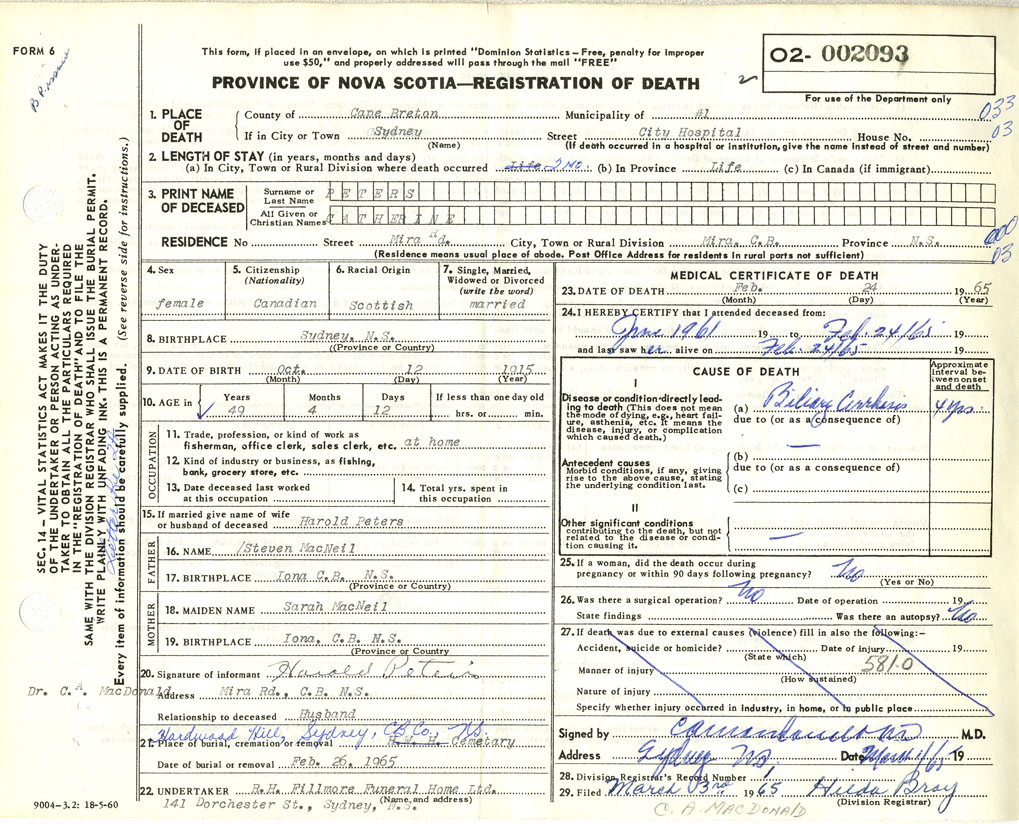 FORM 6
This form, if placed in an envelope, on which is printed "Dominion Statistics — Free, penalty for improper
use $50," and properly addressed will pass through the mail "FREE"
PROVINCE OF NOVA SCOTIA—REGISTRATION OF DEATH
02- 002093
For use of the Department only
1. PLACE OF DEATH
County of Cape Breton Municipality of #1
033
If in City or Town Sydney Street City Hospital House No.
03
(Name) (If death occurred in a hospital or institution, give the name instead of street and number)
2. LENGTH OF STAY (in years, months and days)
(a) In City, Town or Rural Division where death occurred Life 2 Mo. (b) In Province Life (c) In Canada (if immigrant)
3. PRINT NAME OF DECEASED
Surname or Last Name PETERS
All Given or Christian Names CATHERINE
RESIDENCE No Street Mira Rd. City, Town or Rural Division Mira, C.B. Province N.S.
(Residence means usual place of abode. Post Office Address for residents in rural parts not sufficient)
03
4. Sex
female
5. Citizenship
(Nationality)
Canadian
6. Racial Origin
Scottish
7. Single, Married,
Widowed or Divorced
(write the word)
married
8. BIRTHPLACE Sydney, N.S.
(Province or Country)
9. DATE OF BIRTH Oct. 12 1915
(Month) (Day) (Year)
10. AGE in
Years Months Days If less than one day old
49 4 12 hrs. or min.
OCCUPATION
11. Trade, profession, or kind of work as
fisherman, office clerk, sales clerk, etc. at home
12. Kind of industry or business, as fishing,
bank, grocery store, etc.
13. Date deceased last worked
at this occupation
14. Total yrs. spent in
this occupation
15. If married give name of wife
or husband of deceased Harold Peters
FATHER
16. NAME /Steven MacNeil
17. BIRTHPLACE Iona C.B. N.S.
(Province or Country)
MOTHER
18. MAIDEN NAME Sarah MacNeil
19. BIRTHPLACE Iona, C.B. N.S.
(Province or Country)
20. Signature of informant Harold Peters
Dr. C. A. MacDonald
Address Mira Rd., C.B. N.S.
Relationship to deceased Husband
Hardwood Hill, Sydney, C.B. Co. N.S.
21. Place of burial, cremation or removal H.W. H. Cemetary
Date of burial or removal Feb. 26, 1965
22. UNDERTAKER R.H. Fillmore Funeral Home Ltd.
(Name and address)
141 Dorchester St., Sydney, N.S.
9004—3.2: 18-5-60
MEDICAL CERTIFICATE OF DEATH
23. DATE OF DEATH Feb. 24 1965
(Month) (Day) (Year)
24. I HEREBY CERTIFY that I attended deceased from:
June 1961 19 to Feb. 24/65 19
and last saw her alive on Feb. 24/65 19
CAUSE OF DEATH
Approximate
interval be-
tween onset
and death
I
Disease or condition directly lead-
ing to death (This does not mean
the mode of dying, e.g., heart fail-
ure, asthenia, etc. It means the
disease, injury, or complication
which caused death.)
(a) Biliary Cirrhosis 4 yrs.
due to (or as a consequence of)
Antecedent causes
Morbid conditions, if any, giving
rise to the above cause, stating
the underlying condition last.
(b)
due to (or as a consequence of)
(c)
II
Other significant conditions
contributing to the death, but not
related to the disease or condi-
tion causing it.
25. If a woman, did the death occur during
pregnancy or within 90 days following pregnancy? No
(Yes or No)
26. Was there a surgical operation? No Date of operation 19
State findings Was there an autopsy? No
27. If death was due to external causes (violence) fill in also the following:—
Accident, suicide or homicide? Date of injury 19
(State which)
Manner of injury 581.0
(How sustained)
Nature of injury
Specify whether injury occurred in industry, in home, or in public place
Signed by M.D.
Address Sydney NS, Date March 1/65 19
28. Division Registrar's Record Number
29. Filed March 03rd 1965 Hilda Bray
(Division Registrar)
C. A. MACDONALD
SEC. 14 — VITAL STATISTICS ACT MAKES IT THE DUTY
OF THE UNDERTAKER OR PERSON ACTING AS UNDER-
TAKER TO OBTAIN ALL THE PARTICULARS REQUIRED
IN THE "REGISTRATION OF DEATH" AND TO FILE THE
SAME WITH THE DIVISION REGISTRAR WHO SHALL ISSUE THE BURIAL PERMIT.
WRITE PLAINLY WITH UNFADING INK. THIS IS A PERMANENT RECORD.
Every item of information should be carefully supplied. (See reverse side for instructions.)